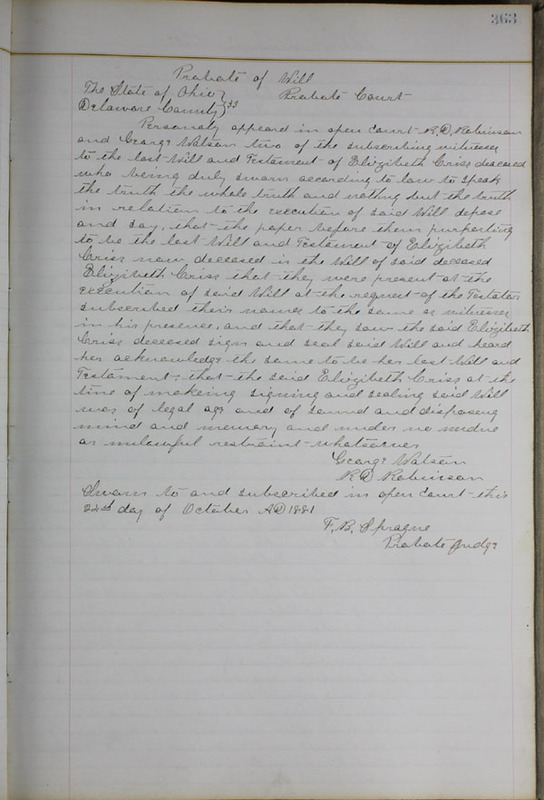 363
Probate of Will
The State of Ohio } Probate Court
Delaware County } SS
Personaly appeared in open Court R. D. Robinson
and George Watson two of the subscribing witnesses
to the last Will and Testament of Elizibeth Criss deceased
who being duly sworn according to law to speak
the truth the whole truth and nothing but the truth
in relation to the execution of said Will depose
and say, that the paper before them purporting
to be the last Will and Testament of Elizibeth
Criss now deceased is the Will of said deceased
Elizibeth Criss that they were present at the
execution of said Will at the request of the Testator
subscribed their names to the same as witnesses
in his presence, and that they saw the said Elizibeth
Criss deceased sign and seal said Will and heard
her acknowledge the same to be her last Will and
Testament; that the said Elizibeth Criss at the
time of makeing signing and sealing said Will
was of legal age and of sound and disposing
mind and memory and under no undue
or unlawful restraint whatsoever
George Watson
R D Robinson
Sworn to and subscribed in open court this
22nd day of October AD 1881
F. B. Sprague
Probate Judge